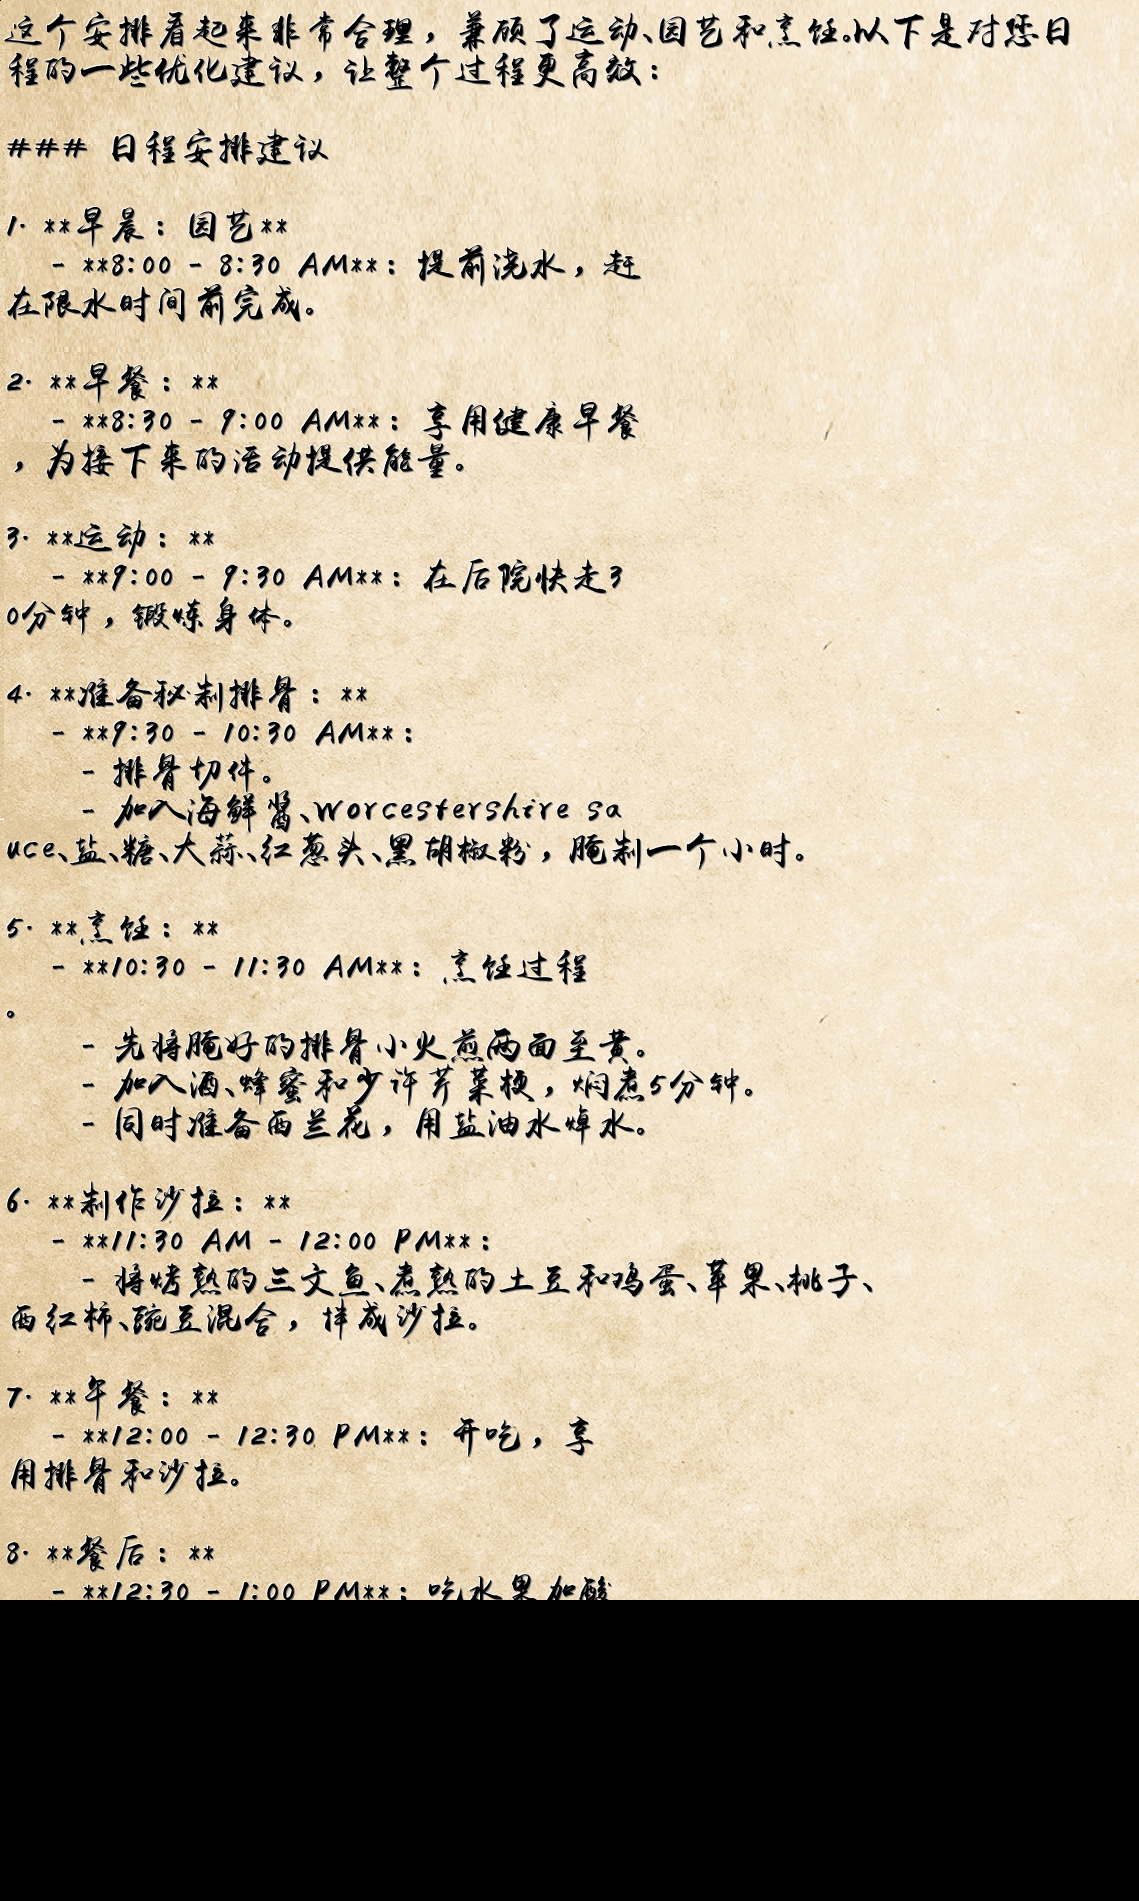 这个安排看起来非常合理，兼顾了运动、园艺和烹饪。以下是对您日
程的一些优化建议，让整个过程更高效：
### 日程安排建议
1. **早晨：园艺**
- **8:00 - 8:30 AM**：提前浇水，赶
在限水时间前完成。
2. **早餐：**
- **8:30 - 9:00 AM**：享用健康早餐
，为接下来的活动提供能量。
3. **运动：**
- **9:00 - 9:30 AM**：在后院快走3
0分钟，锻炼身体。
4. **准备秘制排骨：**
- **9:30 - 10:30 AM**：
- 排骨切件。
- 加入海鲜酱、Worcestershire sa
uce、盐、糖、大蒜、红葱头、黑胡椒粉，腌制一个小时。
5. **烹饪：**
- **10:30 - 11:30 AM**：烹饪过程
。
- 先将腌好的排骨小火煎两面至黄。
- 加入酒、蜂蜜和少许芹菜梗，焖煮5分钟。
- 同时准备西兰花，用盐油水焯水。
6. **制作沙拉：**
- **11:30 AM - 12:00 PM**：
- 将烤熟的三文鱼、煮熟的土豆和鸡蛋、苹果、桃子、
西红柿、豌豆混合，拌成沙拉。
7. **午餐：**
- **12:00 - 12:30 PM**：开吃，享
用排骨和沙拉。
8. **餐后：**
- **12:30 - 1:00 PM**：吃水果加酸